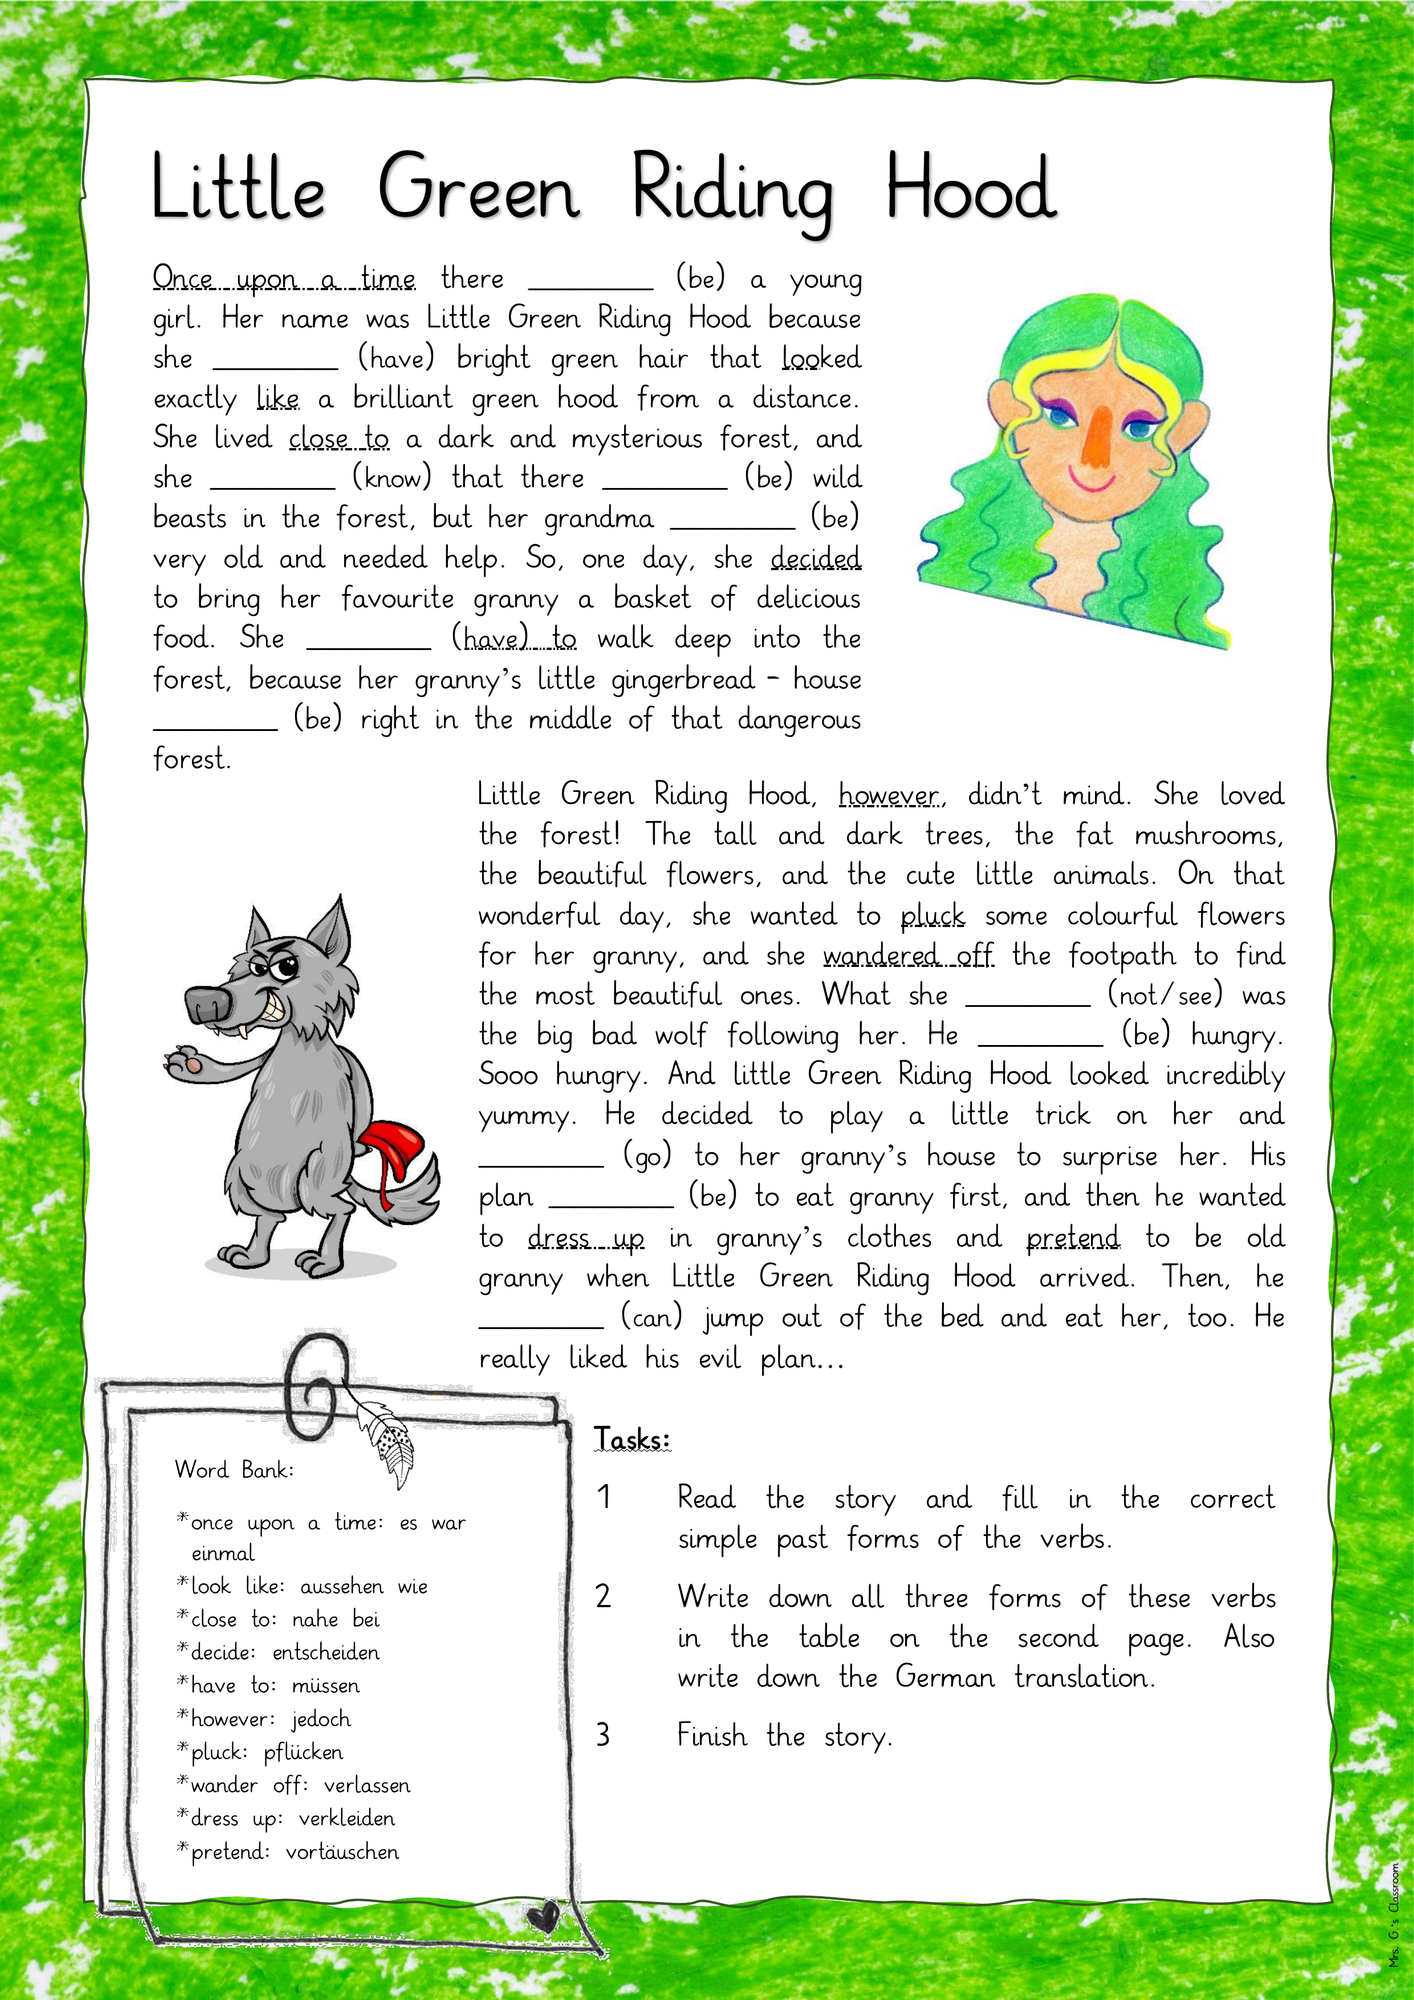 Little Green Riding Hood
Once upon a time there _________ (be) a young
girl. Her name was Little Green Riding Hood because
she _________ (have) bright green hair that looked
exactly like a brilliant green hood from a distance.
She lived close to a dark and mysterious forest, and
she _________ (know) that there _________ (be) wild
beasts in the forest, but her grandma _________ (be)
very old and needed help. So, one day, she decided
to bring her favourite granny a basket of delicious
food. She _________ (have) to walk deep into the
forest, because her granny’s little gingerbread - house
_________ (be) right in the middle of that dangerous
forest.
Little Green Riding Hood, however, didn’t mind. She loved
the forest! The tall and dark trees, the fat mushrooms,
the beautiful flowers, and the cute little animals. On that
wonderful day, she wanted to pluck some colourful flowers
for her granny, and she wandered off the footpath to find
the most beautiful ones. What she _________ (not/see) was
the big bad wolf following her. He _________ (be) hungry.
Sooo hungry. And little Green Riding Hood looked incredibly
yummy. He decided to play a little trick on her and
_________ (go) to her granny’s house to surprise her. His
plan _________ (be) to eat granny first, and then he wanted
to dress up in granny’s clothes and pretend to be old
granny when Little Green Riding Hood arrived. Then, he
_________ (can) jump out of the bed and eat her, too. He
really liked his evil plan...
Word Bank:
*once upon a time: es war
einmal
*look like: aussehen wie
*close to: nahe bei
*decide: entscheiden
*have to: müssen
*however: jedoch
*pluck: pflücken
*wander off: verlassen
*dress up: verkleiden
*pretend: vortäuschen
Tasks:
1 Read the story and fill in the correct
simple past forms of the verbs.
2 Write down all three forms of these verbs
in the table on the second page. Also
write down the German translation.
3 Finish the story.
Mrs. G.'s Classroom